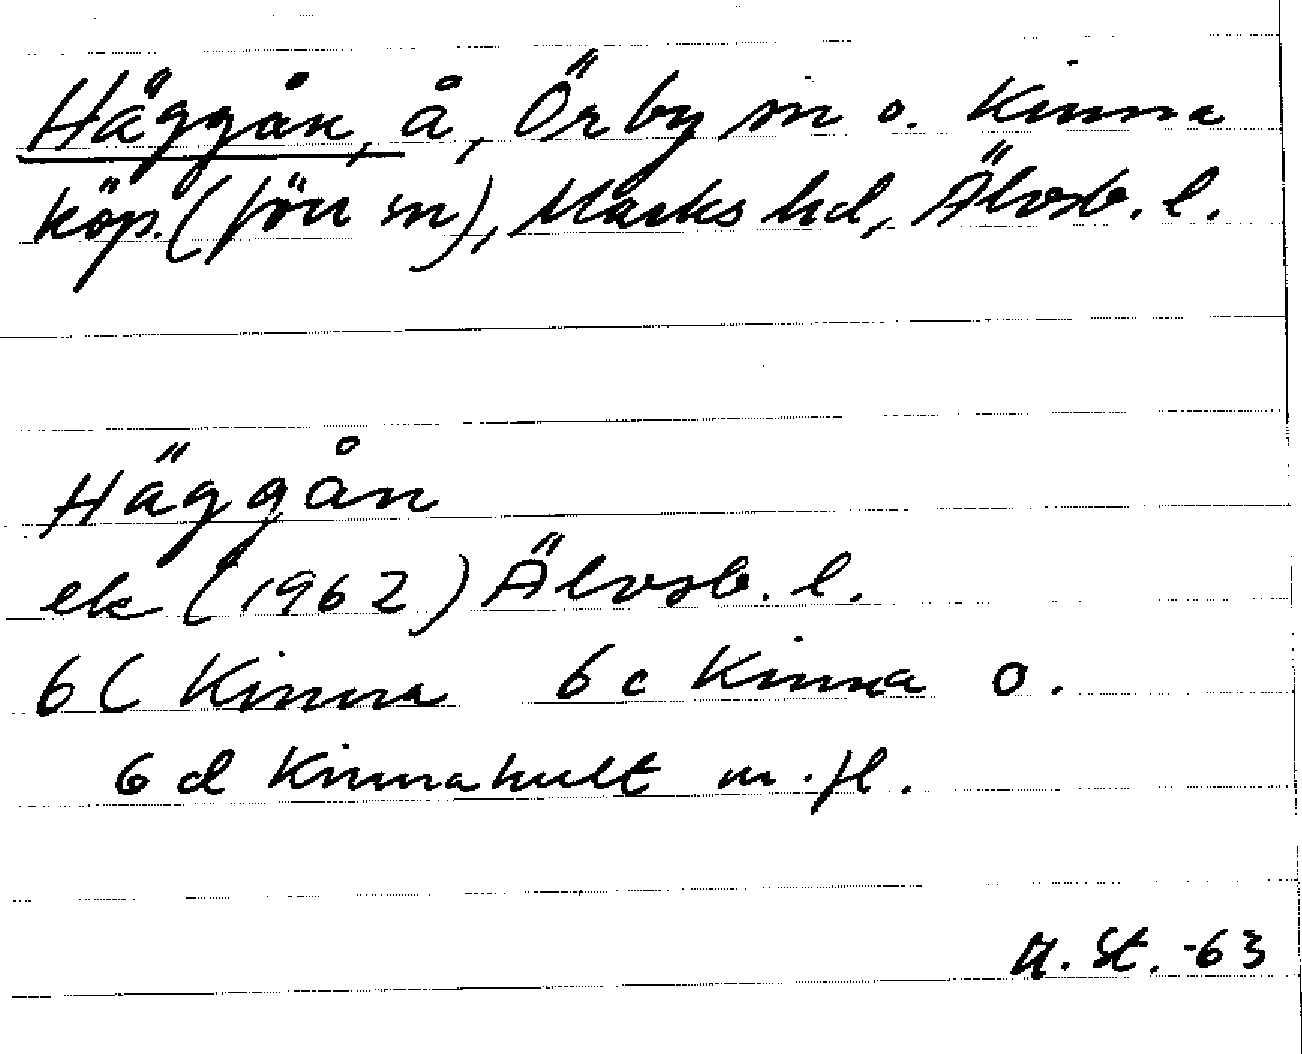 Häggån, å, Örby sn o. Kinna
köp. (förr sn), Marks hd, Älvsb. l.
Häggån
ek (1962) Älvsb. l.
6c Kinna 6c Kinna o.
6d Kinnahult m.fl.
St. -63